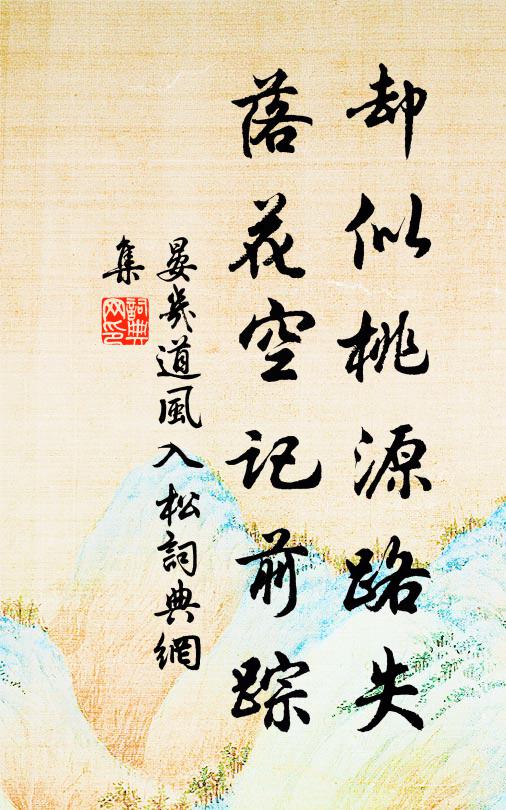 却似桃源路失
落花空记前踪
晏幾道風入松詞典網
集
詞典网印